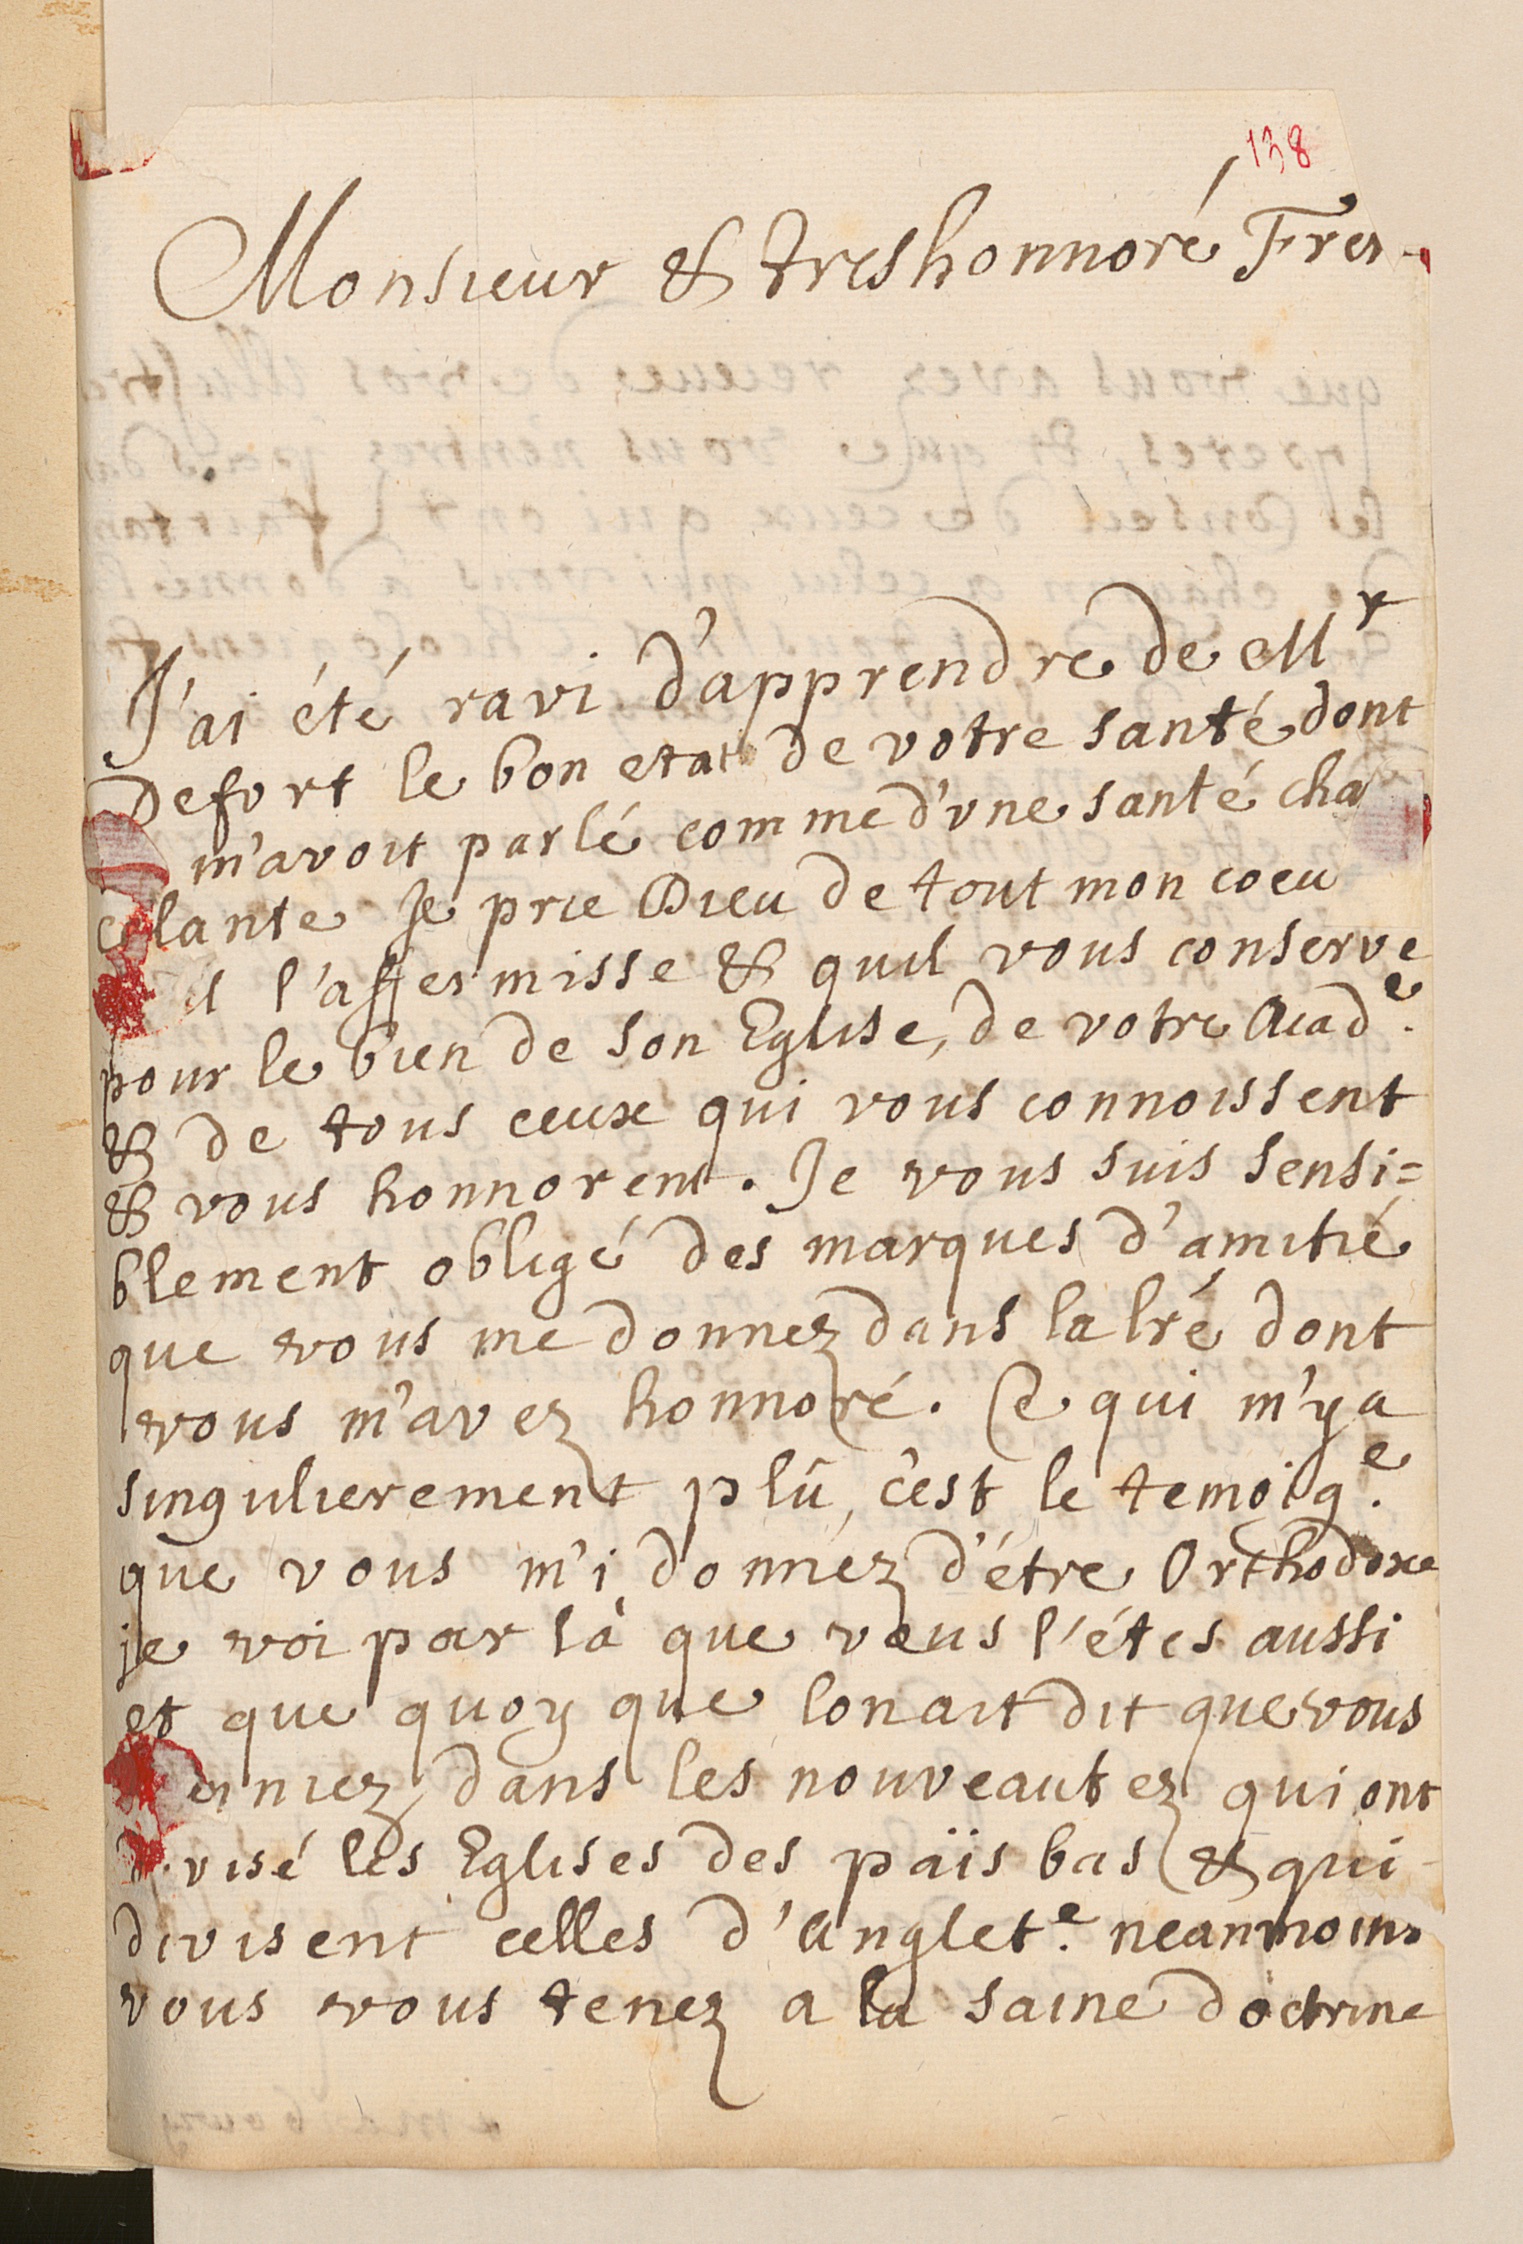 138
Monsieur & treshonnoré Frer
J'ai été ravi d'apprendre de Mr
Defort le bon etat de votre santé dont
m'avoit parlé comme d'vne santé cha
celante Je prie Dieu de tout mon coeu
il l'affermisse & quil vous conserve
pour le bien de son Eglise, de votre Acade.
& de tous ceux qui vous connoissent
& vous honnorent. Je vous suis sensi=
blement obligé des marques d'amitié
que vous me donnez dans la lré dont
vous m'avez honnoré. Ce qui m'y a
singulierement plû, c'est le temoige.
que vous m'i donnez d'étre Orthodoxe
je voi par là que vous l'étes aussi
et que quoy que lon ait dit que vous
dans les nouveautez qui ont
visé les Eglises des païs bas & qui
divisent celles d'Anglete. neanmoins
vous vous tenez a la saine doctrine